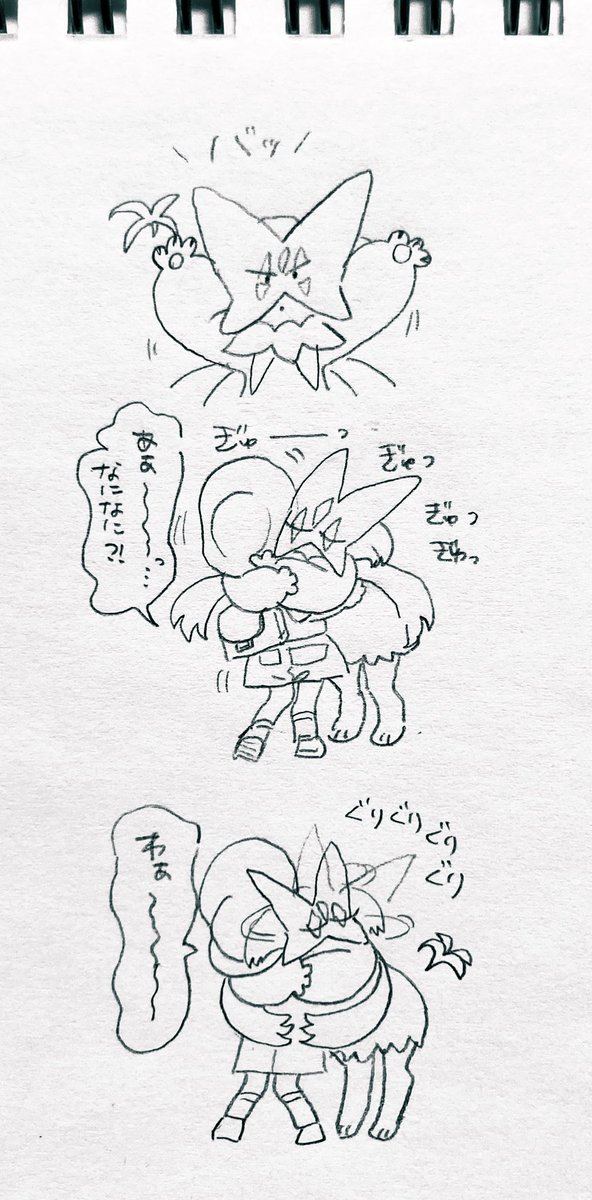 バッ
ぎゅーっ
ぎゅっ
ぎゅっ
ぎゅっ
あぁ〜〜〜っ…
なになに?!
ぐりぐり
ぐり
ぐり
わぁ〜〜〜〜